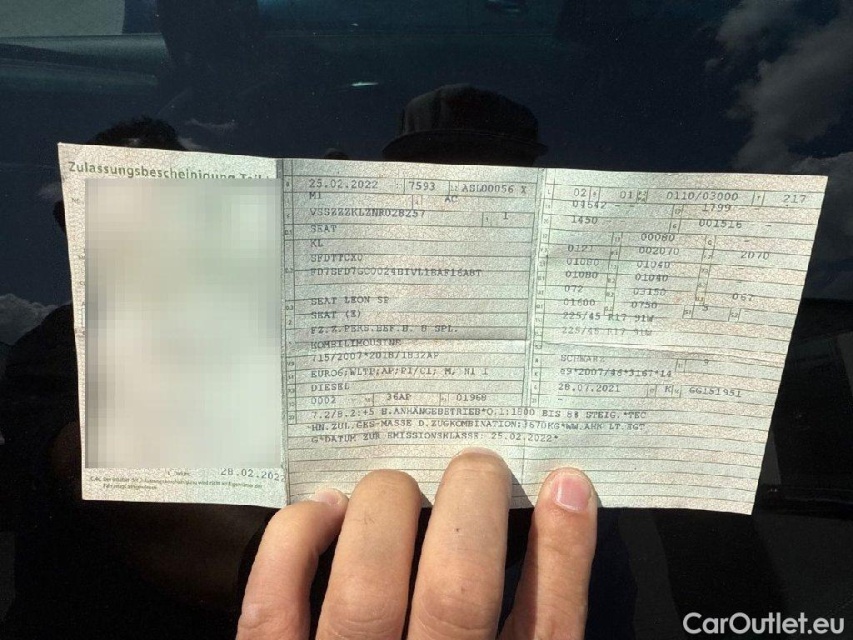 Zulassungsbescheinigung Teil I
25.02.2022 7593 ASL00056 X
M1 AC
VSSZZZKLZNR028257 1
SEAT
KL
SFDTTCX0
SEAT LEON SP
SEAT (E)
FZ.Z.PERS.BEF.B. 8 SPL.
KOMBILIMOUSINE
715/2007*2018/1832AP
EURO6;WLTP;AP;PI/CI; M, N1 I
DIESEL
0002 36AP 01968
02 01 0110/03000 217
04642 - - 1799 -
1450 001516 -
00080 -
0121 002070 2070
01080 01040
01080 01040
072 03150 067
01600 0750 5
225/45 R17 91W
225/45 R17 91W
SCHWARZ 9
e9*2007/46*3167*14
28.07.2021 K GG151951
7.2/8.2:+5 B.ANHÄNGEBETRIEB*O.1:1500 BIS 8% STEIG.*TEC
HN.ZUL.GES-MASSE D.ZUGKOMBINATION:3670KG*WW.AHK LT.EGT
G*DATUM ZUR EMISSIONSKLASSE: 25.02.2022*
28.02.2022
CarOutlet.eu